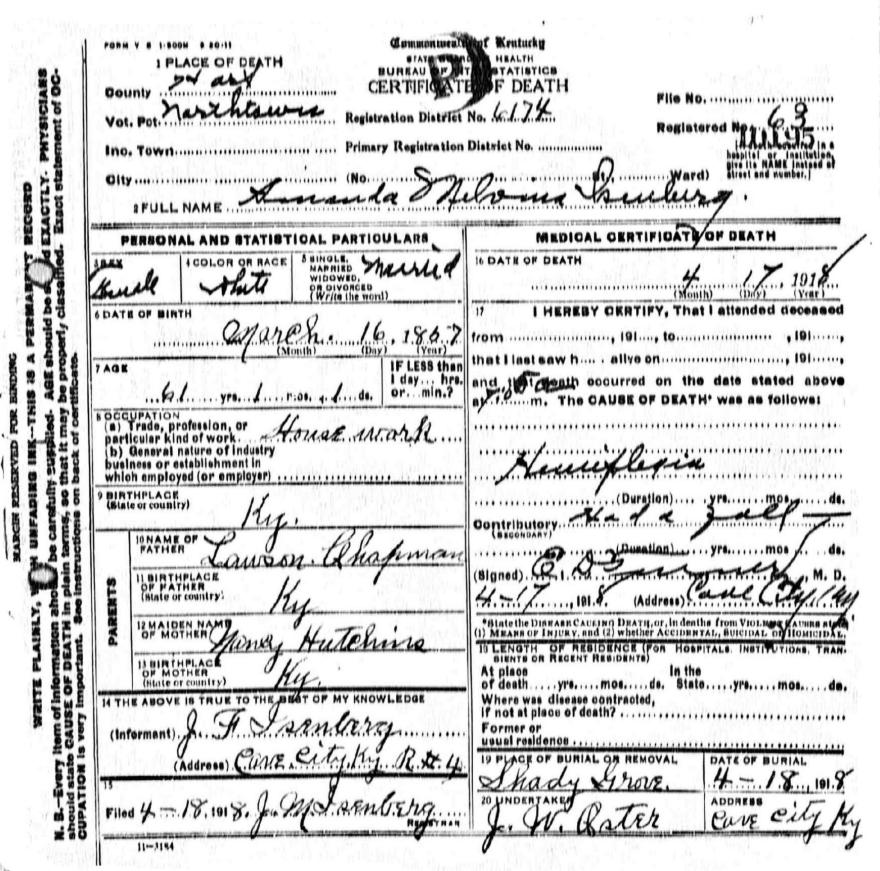 FORM V S 1-500M 9 20-11
Commonwealth of Kentucky
STATE BOARD HEALTH
BUREAU OF VITAL STATISTICS
CERTIFICATE OF DEATH
1 PLACE OF DEATH
County
Vot. Pct. Northtown Registration District No. 6174
File No.
Registered No. 63
Inc. Town. Primary Registration District No.
City. (No. St. Ward)
hospital or institution, give its NAME instead of street and number.]
2 FULL NAME Amanda Melvina Isenberg.
PERSONAL AND STATISTICAL PARTICULARS
3 SEX
4 COLOR OR RACE White
5 SINGLE, MARRIED WIDOWED, OR DIVORCED (Write the word) Married
6 DATE OF BIRTH
March. 16, 1857
(Month) (Day) (Year)
7 AGE
61 yrs. 1 mos. 1 ds.
IF LESS than 1 day... hrs. or... min.?
8 OCCUPATION
(a) Trade, profession, or particular kind of work. House work
(b) General nature of industry business or establishment in which employed (or employer)
9 BIRTHPLACE
(State or country) Ky.
PARENTS
10 NAME OF FATHER Lawson Chapman
11 BIRTHPLACE OF FATHER (State or country) Ky
12 MAIDEN NAME OF MOTHER Nancy Hutchins
13 BIRTHPLACE OF MOTHER (State or country) Ky.
14 THE ABOVE IS TRUE TO THE BEST OF MY KNOWLEDGE
(Informant) J. F. Isenberg
(Address) Cave City Ky R#4
15
Filed 4-18, 1918. J. M. Isenberg
REGISTRAR
11-3184
MEDICAL CERTIFICATE OF DEATH
16 DATE OF DEATH
4 17, 1918
(Month) (Day) (Year)
17 I HEREBY CERTIFY, That I attended deceased
from ..., 191..., to ..., 191...,
that I last saw h... alive on ..., 191...,
and that death occurred on the date stated above
at m. The CAUSE OF DEATH* was as follows:
Hemiplegia
(Duration).... yrs. mos. ds.
Contributory Had a Fall
(SECONDARY)
(Duration).... yrs. mos. ds.
(Signed) M. D.
4-17, 1918 (Address) Cave City, Ky
*State the DISEASE CAUSING DEATH, or, in deaths from VIOLENT CAUSES state
(1) MEANS OF INJURY, and (2) whether ACCIDENTAL, SUICIDAL or HOMICIDAL.
18 LENGTH OF RESIDENCE (FOR HOSPITALS, INSTITUTIONS, TRANSIENTS OR RECENT RESIDENTS)
At place of death.... yrs. mos. ds. In the State.... yrs. mos. ds.
Where was disease contracted,
if not at place of death?
Former or
usual residence
19 PLACE OF BURIAL OR REMOVAL
Shady Grove.
DATE OF BURIAL
4-18, 1918
20 UNDERTAKER
J. W. Oster
ADDRESS
Cave City Ky
MARGIN RESERVED FOR BINDING
WRITE PLAINLY, WITH UNFADING INK---THIS IS A PERMANENT RECORD
N. B.--Every item of information should be carefully supplied. AGE should be stated EXACTLY. PHYSICIANS
should state CAUSE OF DEATH in plain terms, so that it may be properly classified. Exact statement of OC-
CUPATION is very important. See instructions on back of certificate.